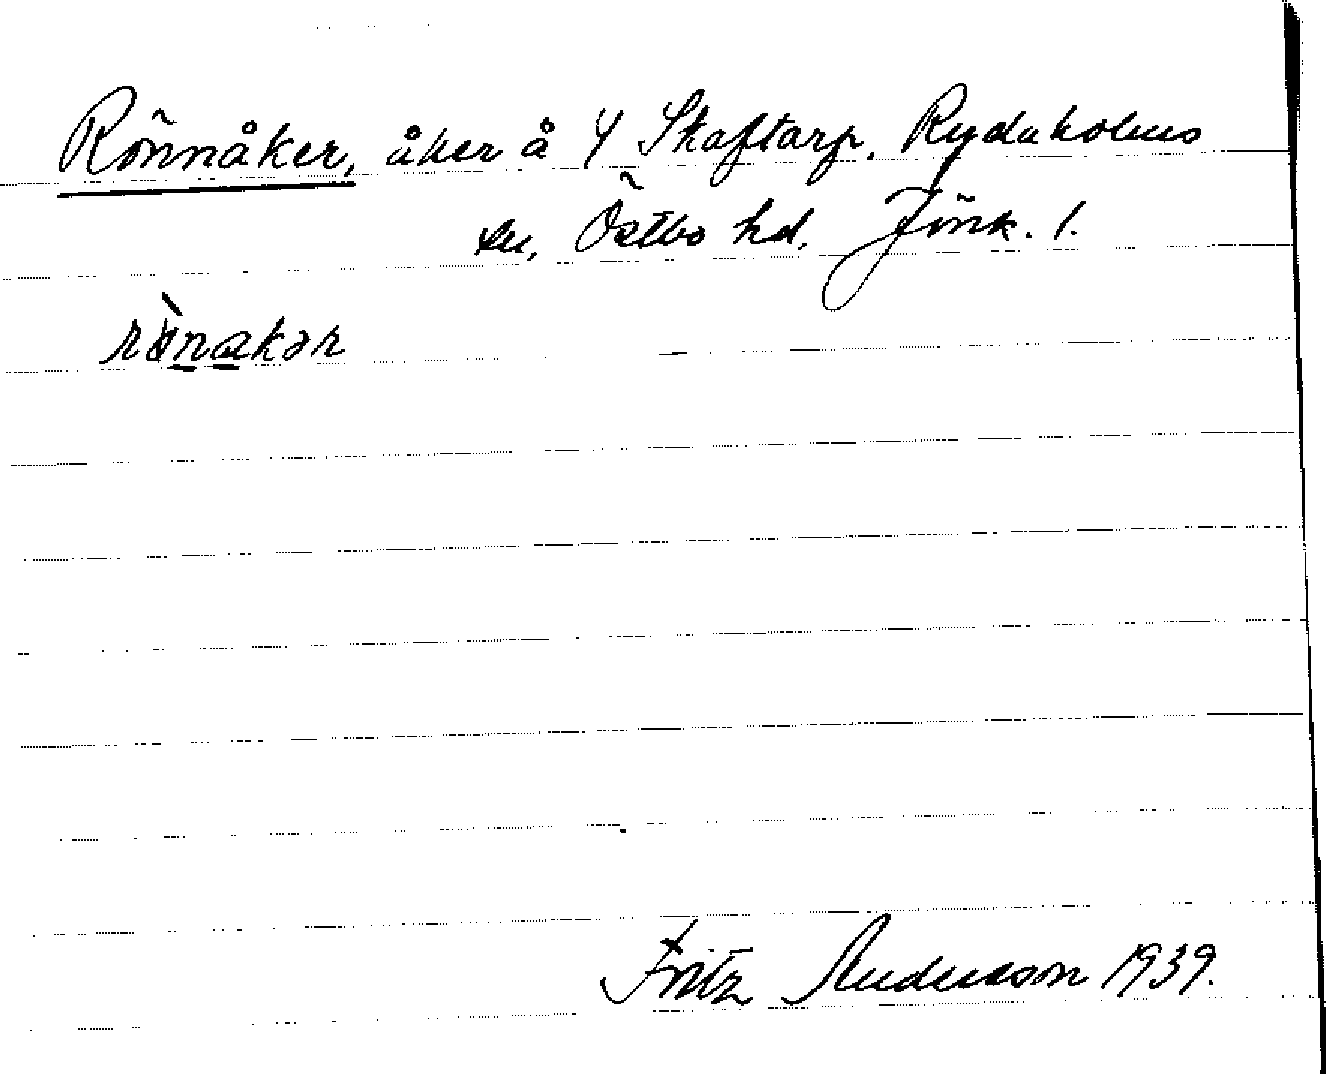 Rönnåker, åker å Y Skaftarp. Rydaholms
sn, Östbo hd, Jönk. l.
rönakər
Fritz Andersson 1939.